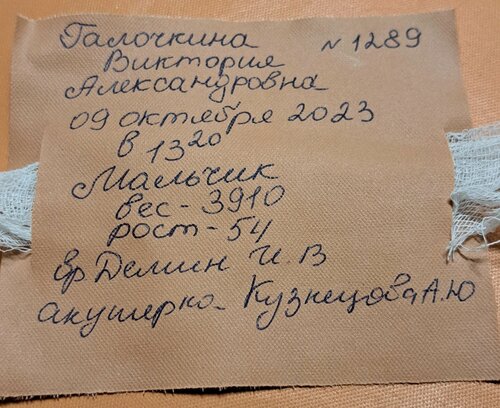 Галочкина N 1289
Виктория
Александровна
09 октября 2023
в 13 20
Мальчик
вес - 3910
рост - 54
вр Демин И. В
акушерка Кузнецова А.Ю